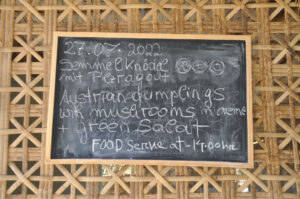 27.07. 2022
Semmelknödel
mit Pilzragout
Austrian dumplings
with mushrooms in creme
+ green Salat
FOOD serve at 14:00